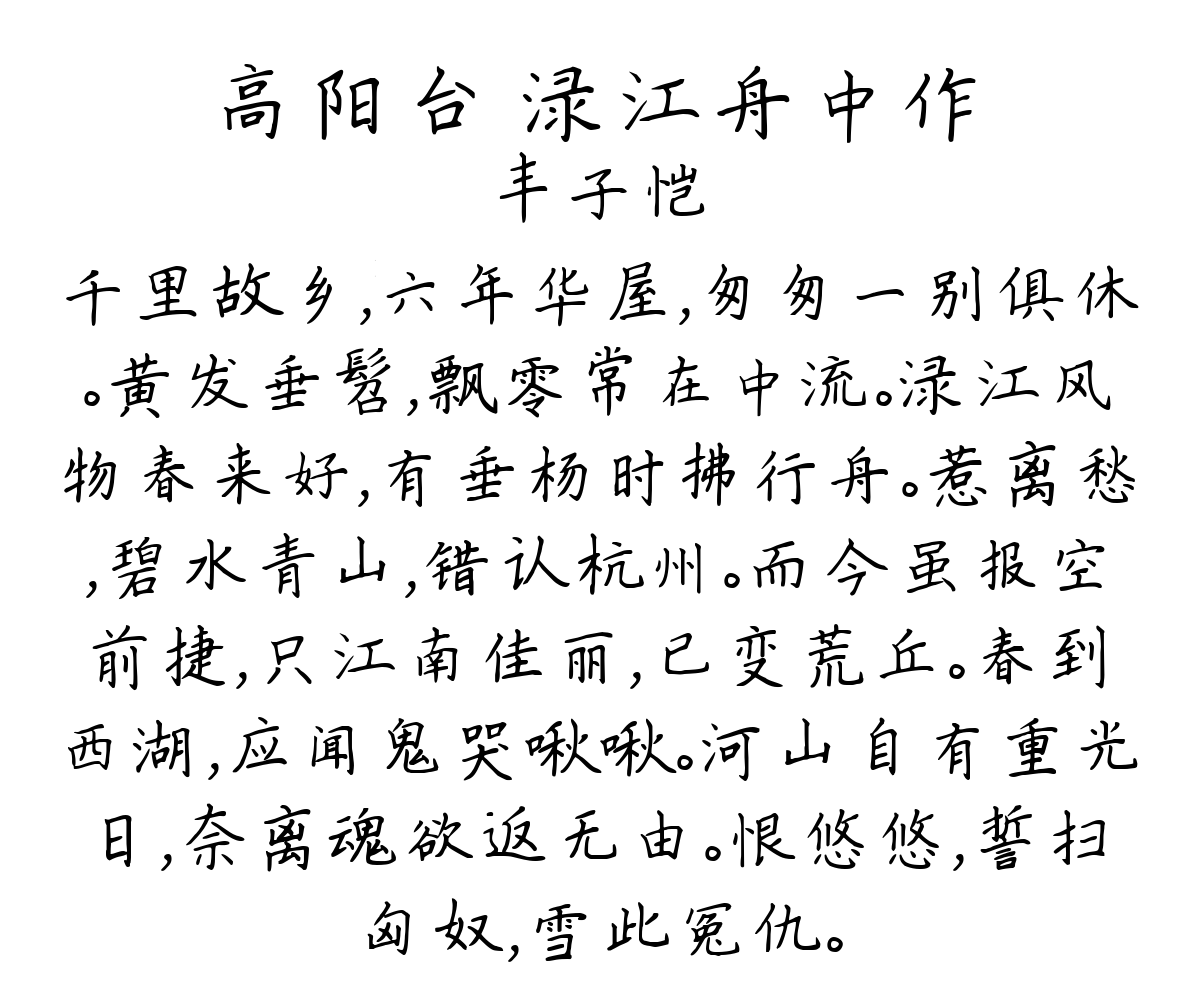 高阳台 渌江舟中作
丰子恺
千里故乡,六年华屋,匆匆一别俱休
。黄发垂髫,飘零常在中流。渌江风
物春来好,有垂杨时拂行舟。惹离愁
,碧水青山,错认杭州。而今虽报空
前捷,只江南佳丽,已变荒丘。春到
西湖,应闻鬼哭啾啾。河山自有重光
日,奈离魂欲返无由。恨悠悠,誓扫
匈奴,雪此冤仇。